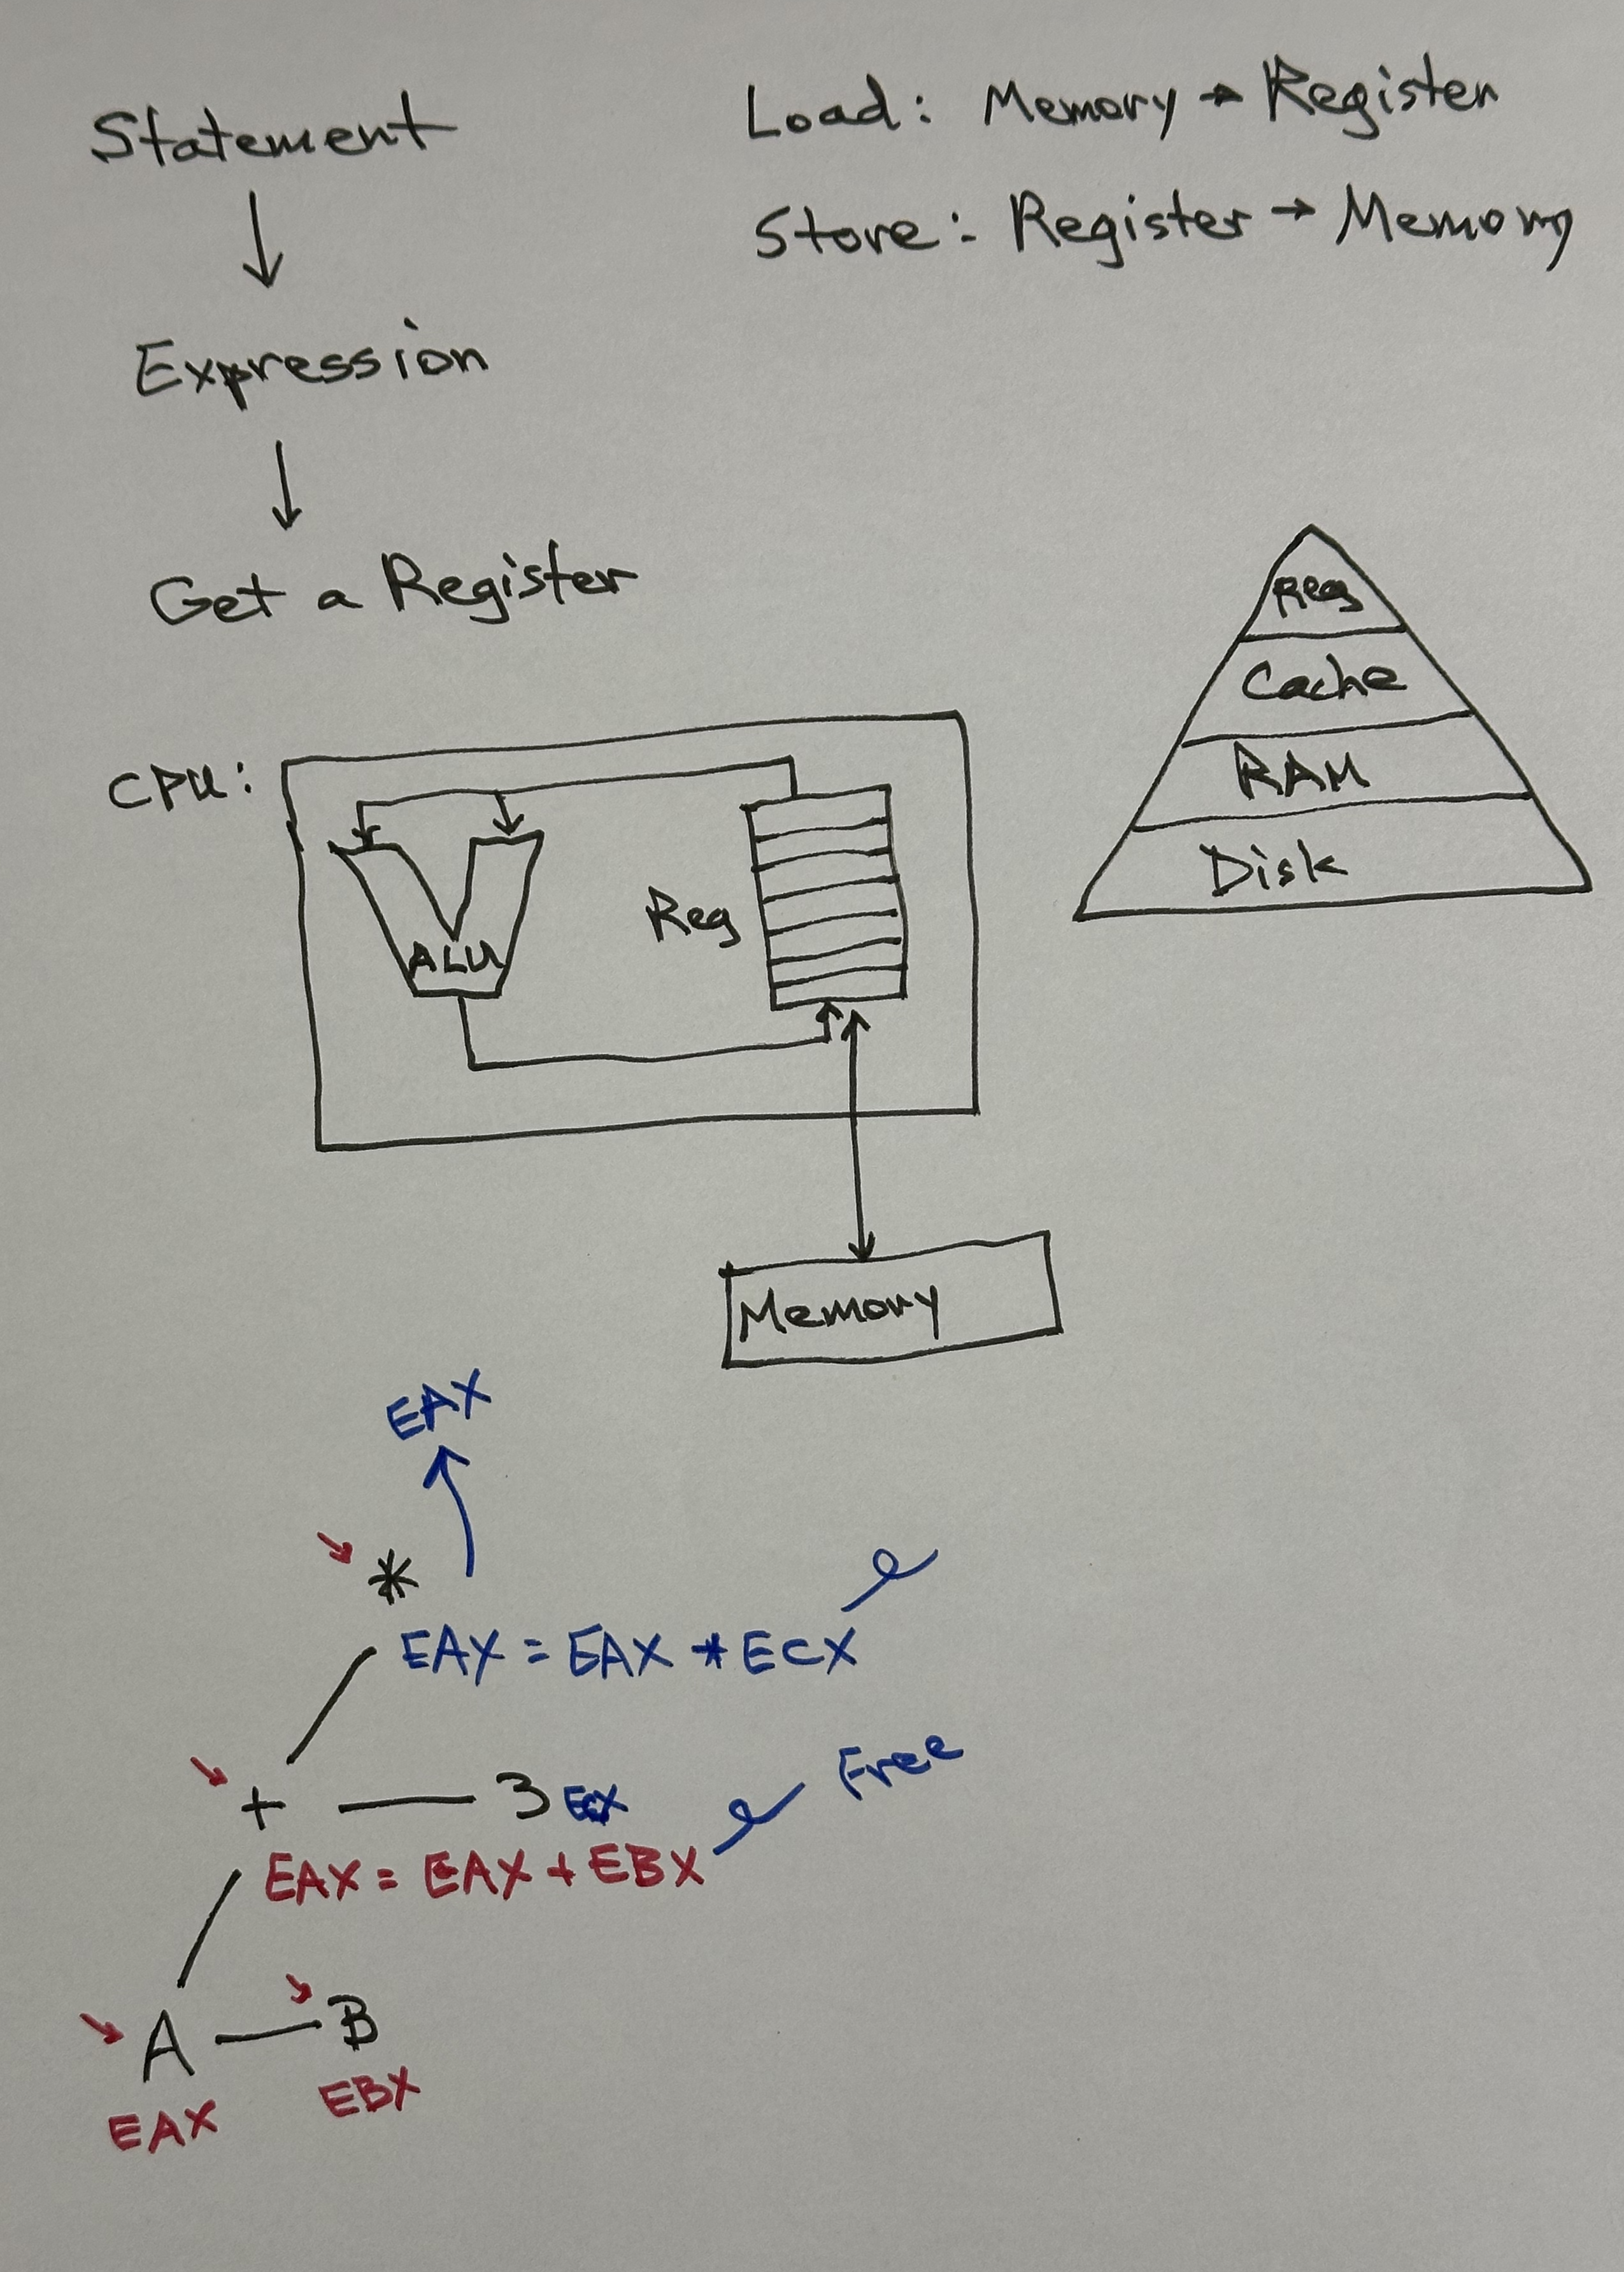 Statement
Load: Memory → Register
Store: Register → Memory
Expression
Get a Register
Reg
Cache
RAM
Disk
CPU:
ALU
Reg
Memory
EAX
*
EAX = EAX * ECX
+
3 ECX
Free
EAX = EAX + EBX
A
B
EAX
EBX